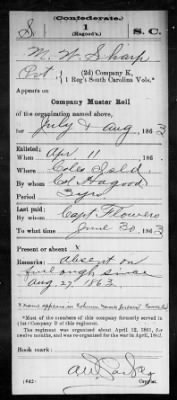 (Confederate.)
S 1 S. C.
(Hagood's.)
M. W. Sharp
Pvt, (2d) Company K,
1 Reg't South Carolina Vols.*
Appears on
Company Muster Roll
of the organization named above,
for July & Aug, 1863
Enlisted:
When Apr 11, 186
Where Coles Isld.
By whom Col Hagood
Period 3 yrs
Last paid:
By whom Capt Flowers
To what time June 30, 1863
Present or absent X
Remarks: absent on
furlough since
Aug 27 1863
*Most of the members of this company formerly served in
1st Company
The regiment was organized about April 12, 1861, for
twelve months, and was re-organized for the war in April, 1862.
Book mark:
(642)
Copyist.